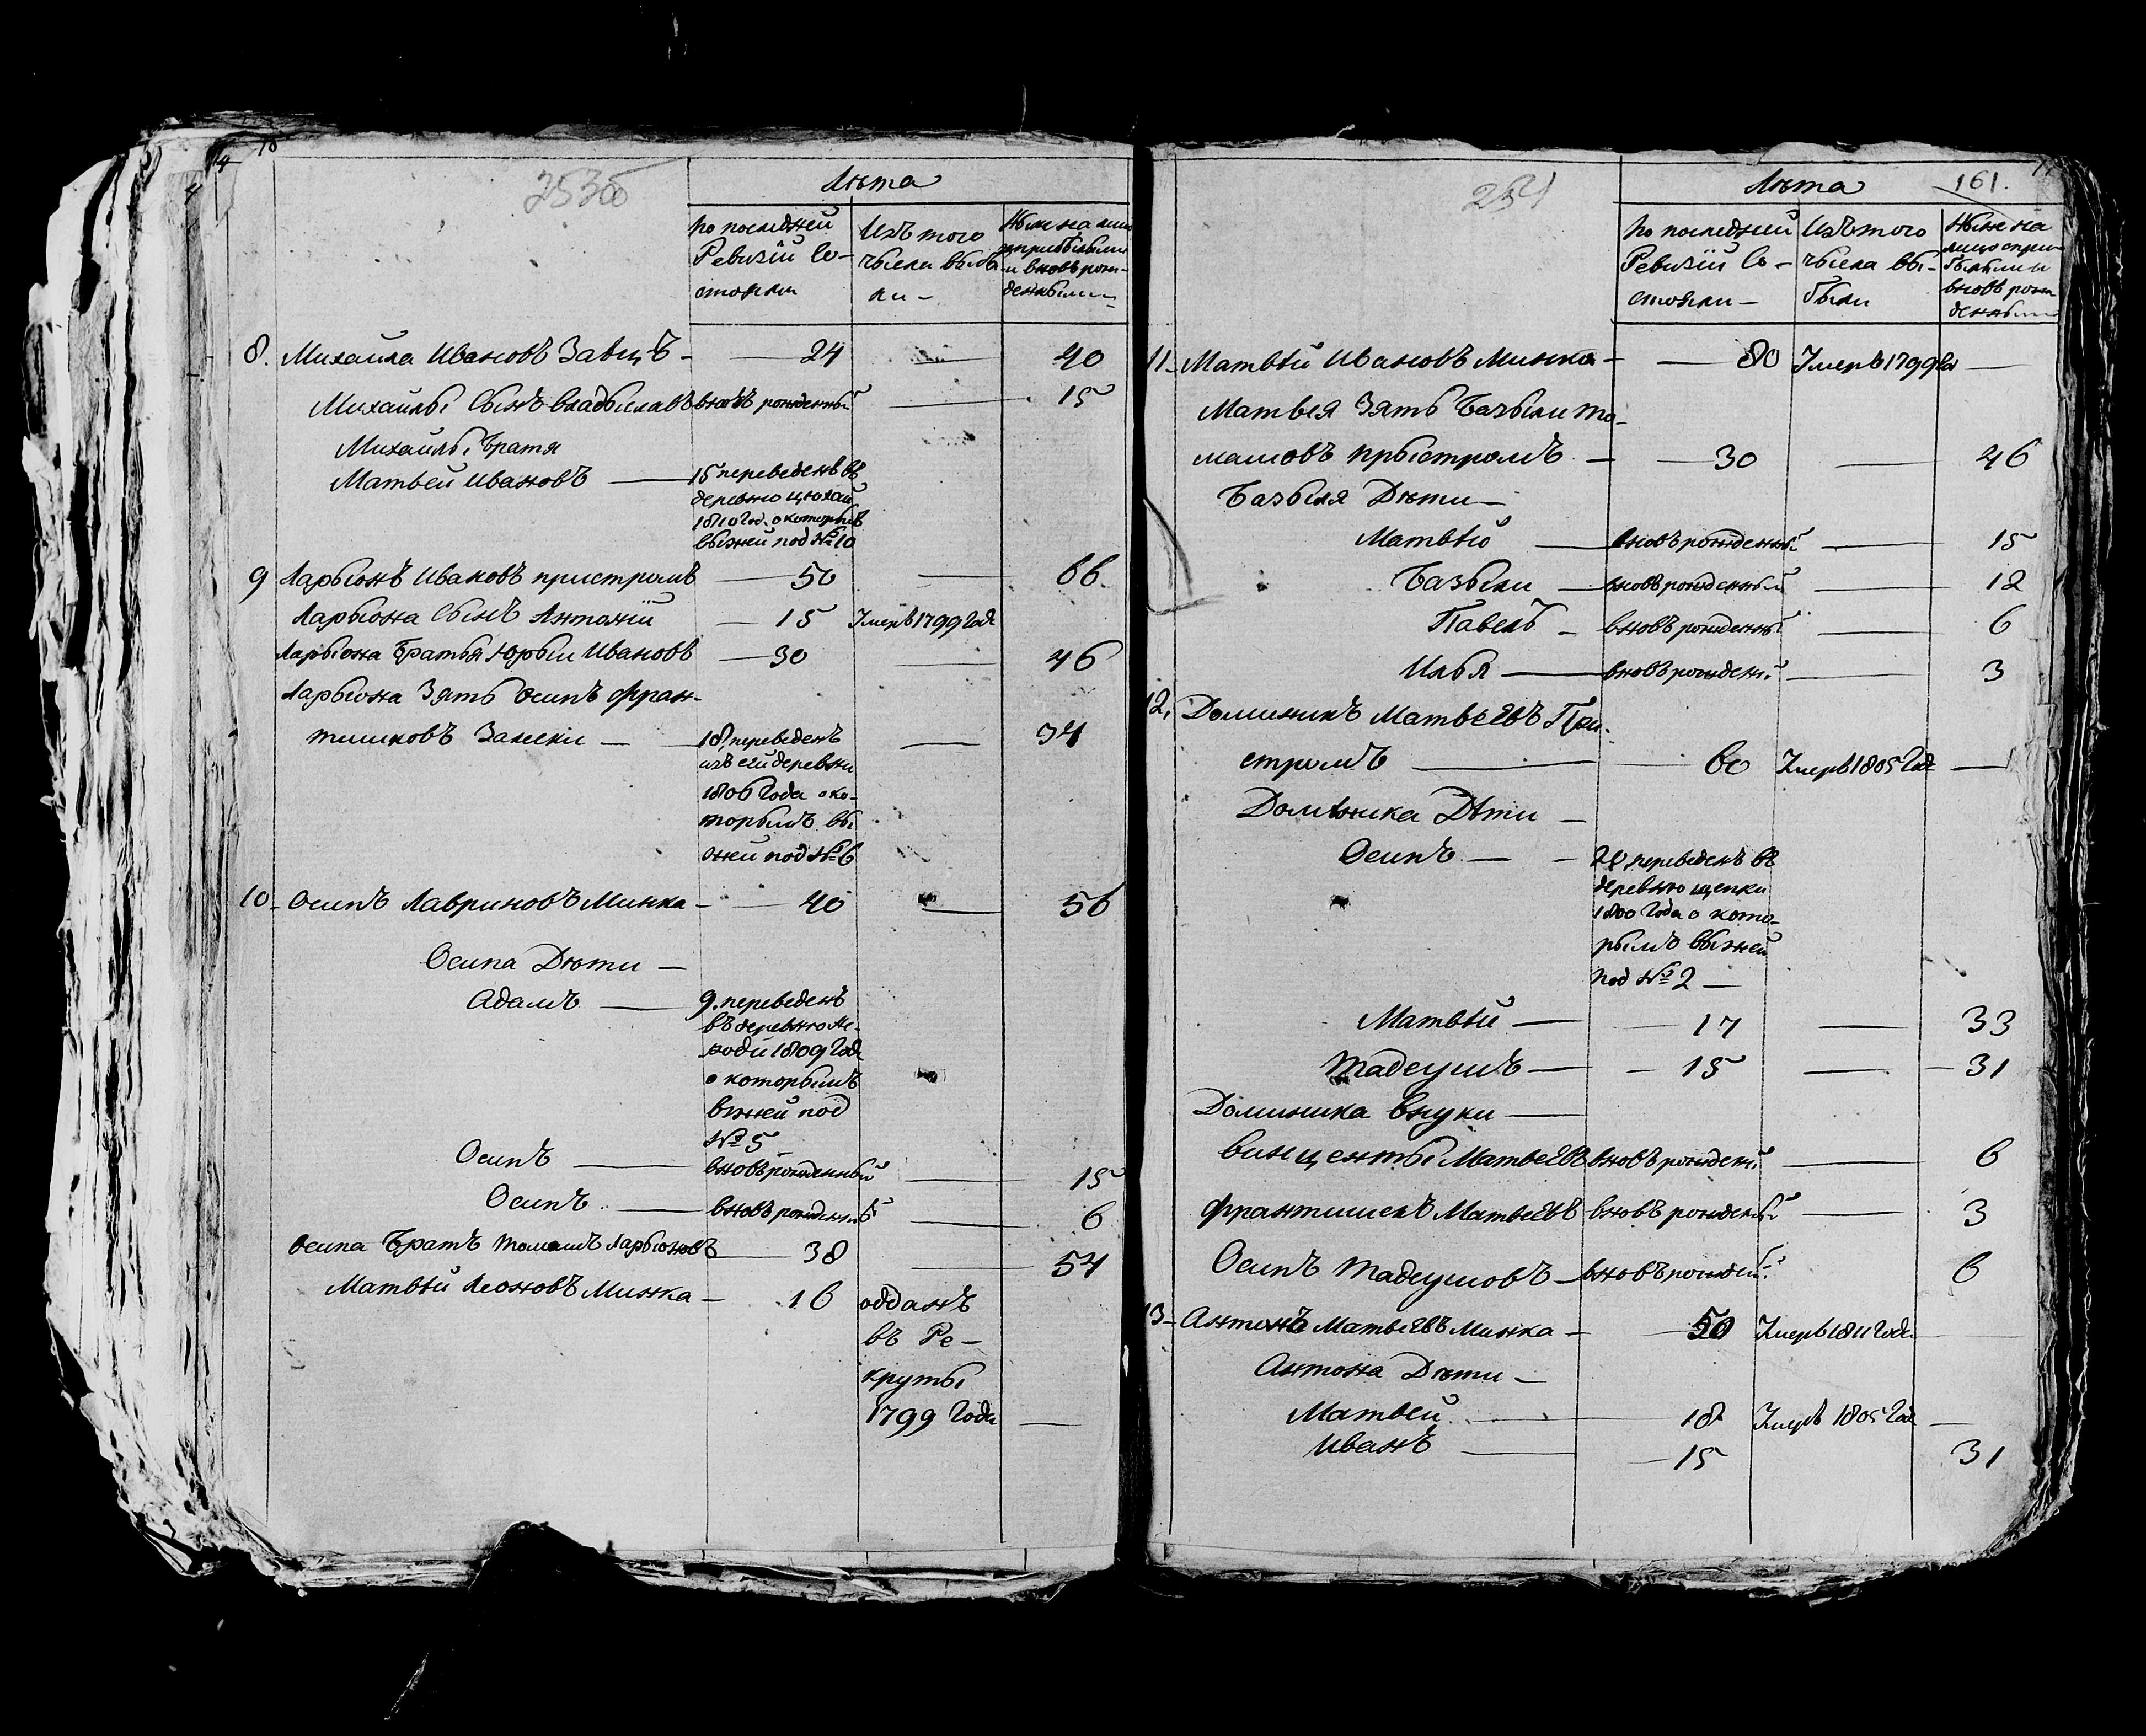 18
253об
Лѣта
по последней
Ревизїи Со-
стояли
Изъ того
числа выбы
ли -
Ныне на лицо
с прибылыми
и вновь рож-
денными
8. Михайла Ивановъ Завецъ - 24 — 40
Михайлы Сынъ Владыславъ вновь рожденный — 15
Михайлы братя
Матвей Ивановъ — 15 переведенъ въ
деревню
1810 Год. о которымъ
выжей под № 10
9 Ларыонъ Ивановъ пристромъ — 50 — 66.
Ларыона Сынъ Антонїй — 15 Умеръ 1799 Года
Ларыона братья Юрьи Ивановъ — 30 — 46
Ларыона Зять Осипъ Фран-
тишковъ Залески — 18, переведенъ — 34
изъ сей деревни
1806 Года о ко-
торымъ вы
жей под № 6
10 - Осипъ Лавриновъ Минка - — 40 — 56
Осипа Дѣти —
Адамъ — 9. переведенъ
въ деревню Не-
роди 1809 Года
о которымъ
выжей под
№ 5
Осипъ — вновь рожденный — 15
Осипъ — вновь рожденный — 6
Осипа братъ Томашъ Ларыоновъ — 38 — 54
Матвѣй Леоновъ Минка - 16 отданъ
въ Ре-
круты
1799 Года —
254
161.
Лѣта
по последней
Ревизїи Со -
стояли —
Изъ того
числа вы-
были
Ныне на
лицо с при
былыми и
вновь рож
денными
11 - Матвѣй Ивановъ Минка - — 80 Умеръ 1799 Го —
Матвея Зять Базыли То-
машовъ прыстромъ — — 30 — 46
Базыля Дѣти —
Матвѣй — вновь рожденный — 15
Базыли — вновь рожденный — 12
Павелъ - вновь рожденный — 6
Илья — вновь рожденный — 3
12, Доминикъ Матвеевъ При-
стромъ — 60 Умеръ 1805 Года —
Доминика Дѣти —
Осипъ — - 20, переведенъ въ
деревню щепки
1800 Года о кото-
рымъ выжей
под № 2 —
Матвѣй — — 17 — 33
Тадеушъ — - 15 — 31
Доминика внуки —
Винценты Матвеевъ вновь рожденный — 6
Франтишекъ Матвеевъ вновь рожденный — 3
Осипъ Тадеушовъ - вновь рожденный 6
13 - Антонъ Матвеевъ Минка - — 50 Умеръ 1811 Года —
Антона Дѣти —
Матвей — 18 Умеръ 1805 Года —
Иванъ — 15 31